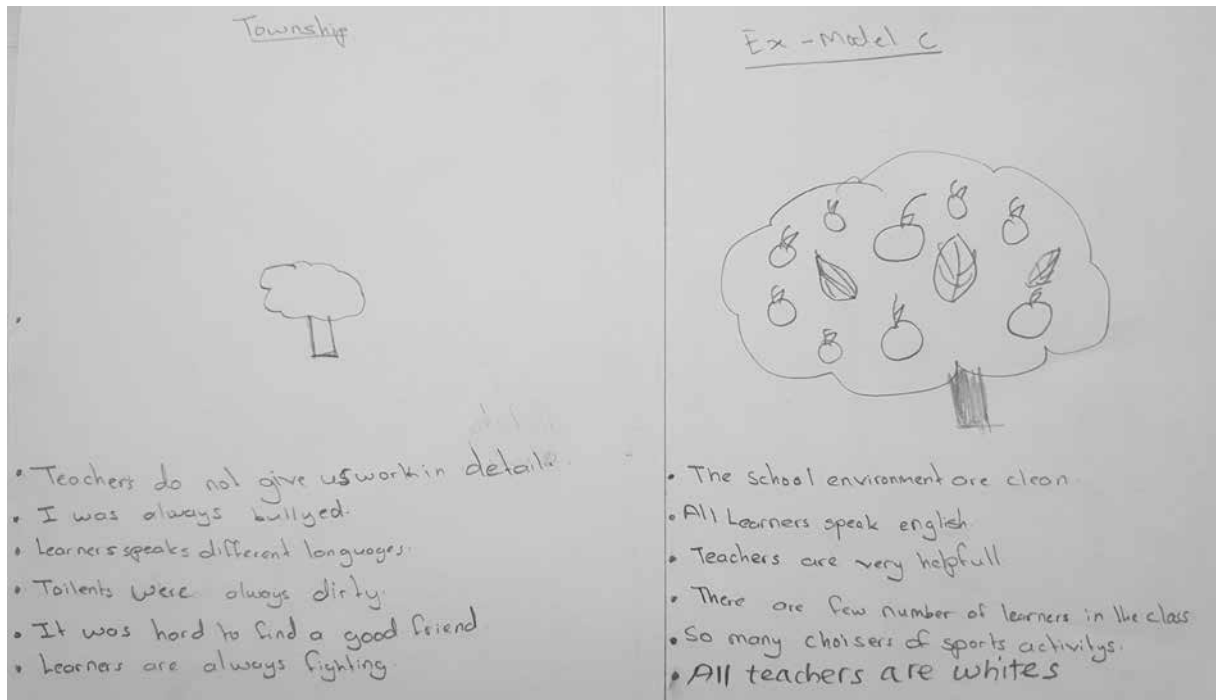 Township
• Teachers do not give us work in detail.
• I was always bullyed.
• Learners speaks different languages.
• Toilents were always dirty.
• It was hard to find a good friend
• Learners are always fighting.
Ex-Model C
• The school environment are clean.
• All Learners speak english
• Teachers are very helpfull
• There are few number of learners in the class
• So many choisers of sports activitys.
• All teachers are whites